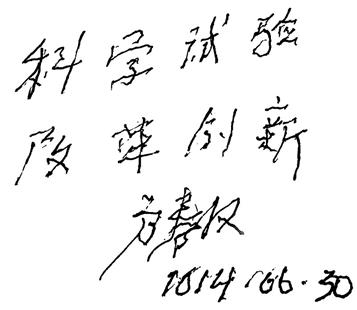 科学试验
改革创新
方春权
2014·06·30